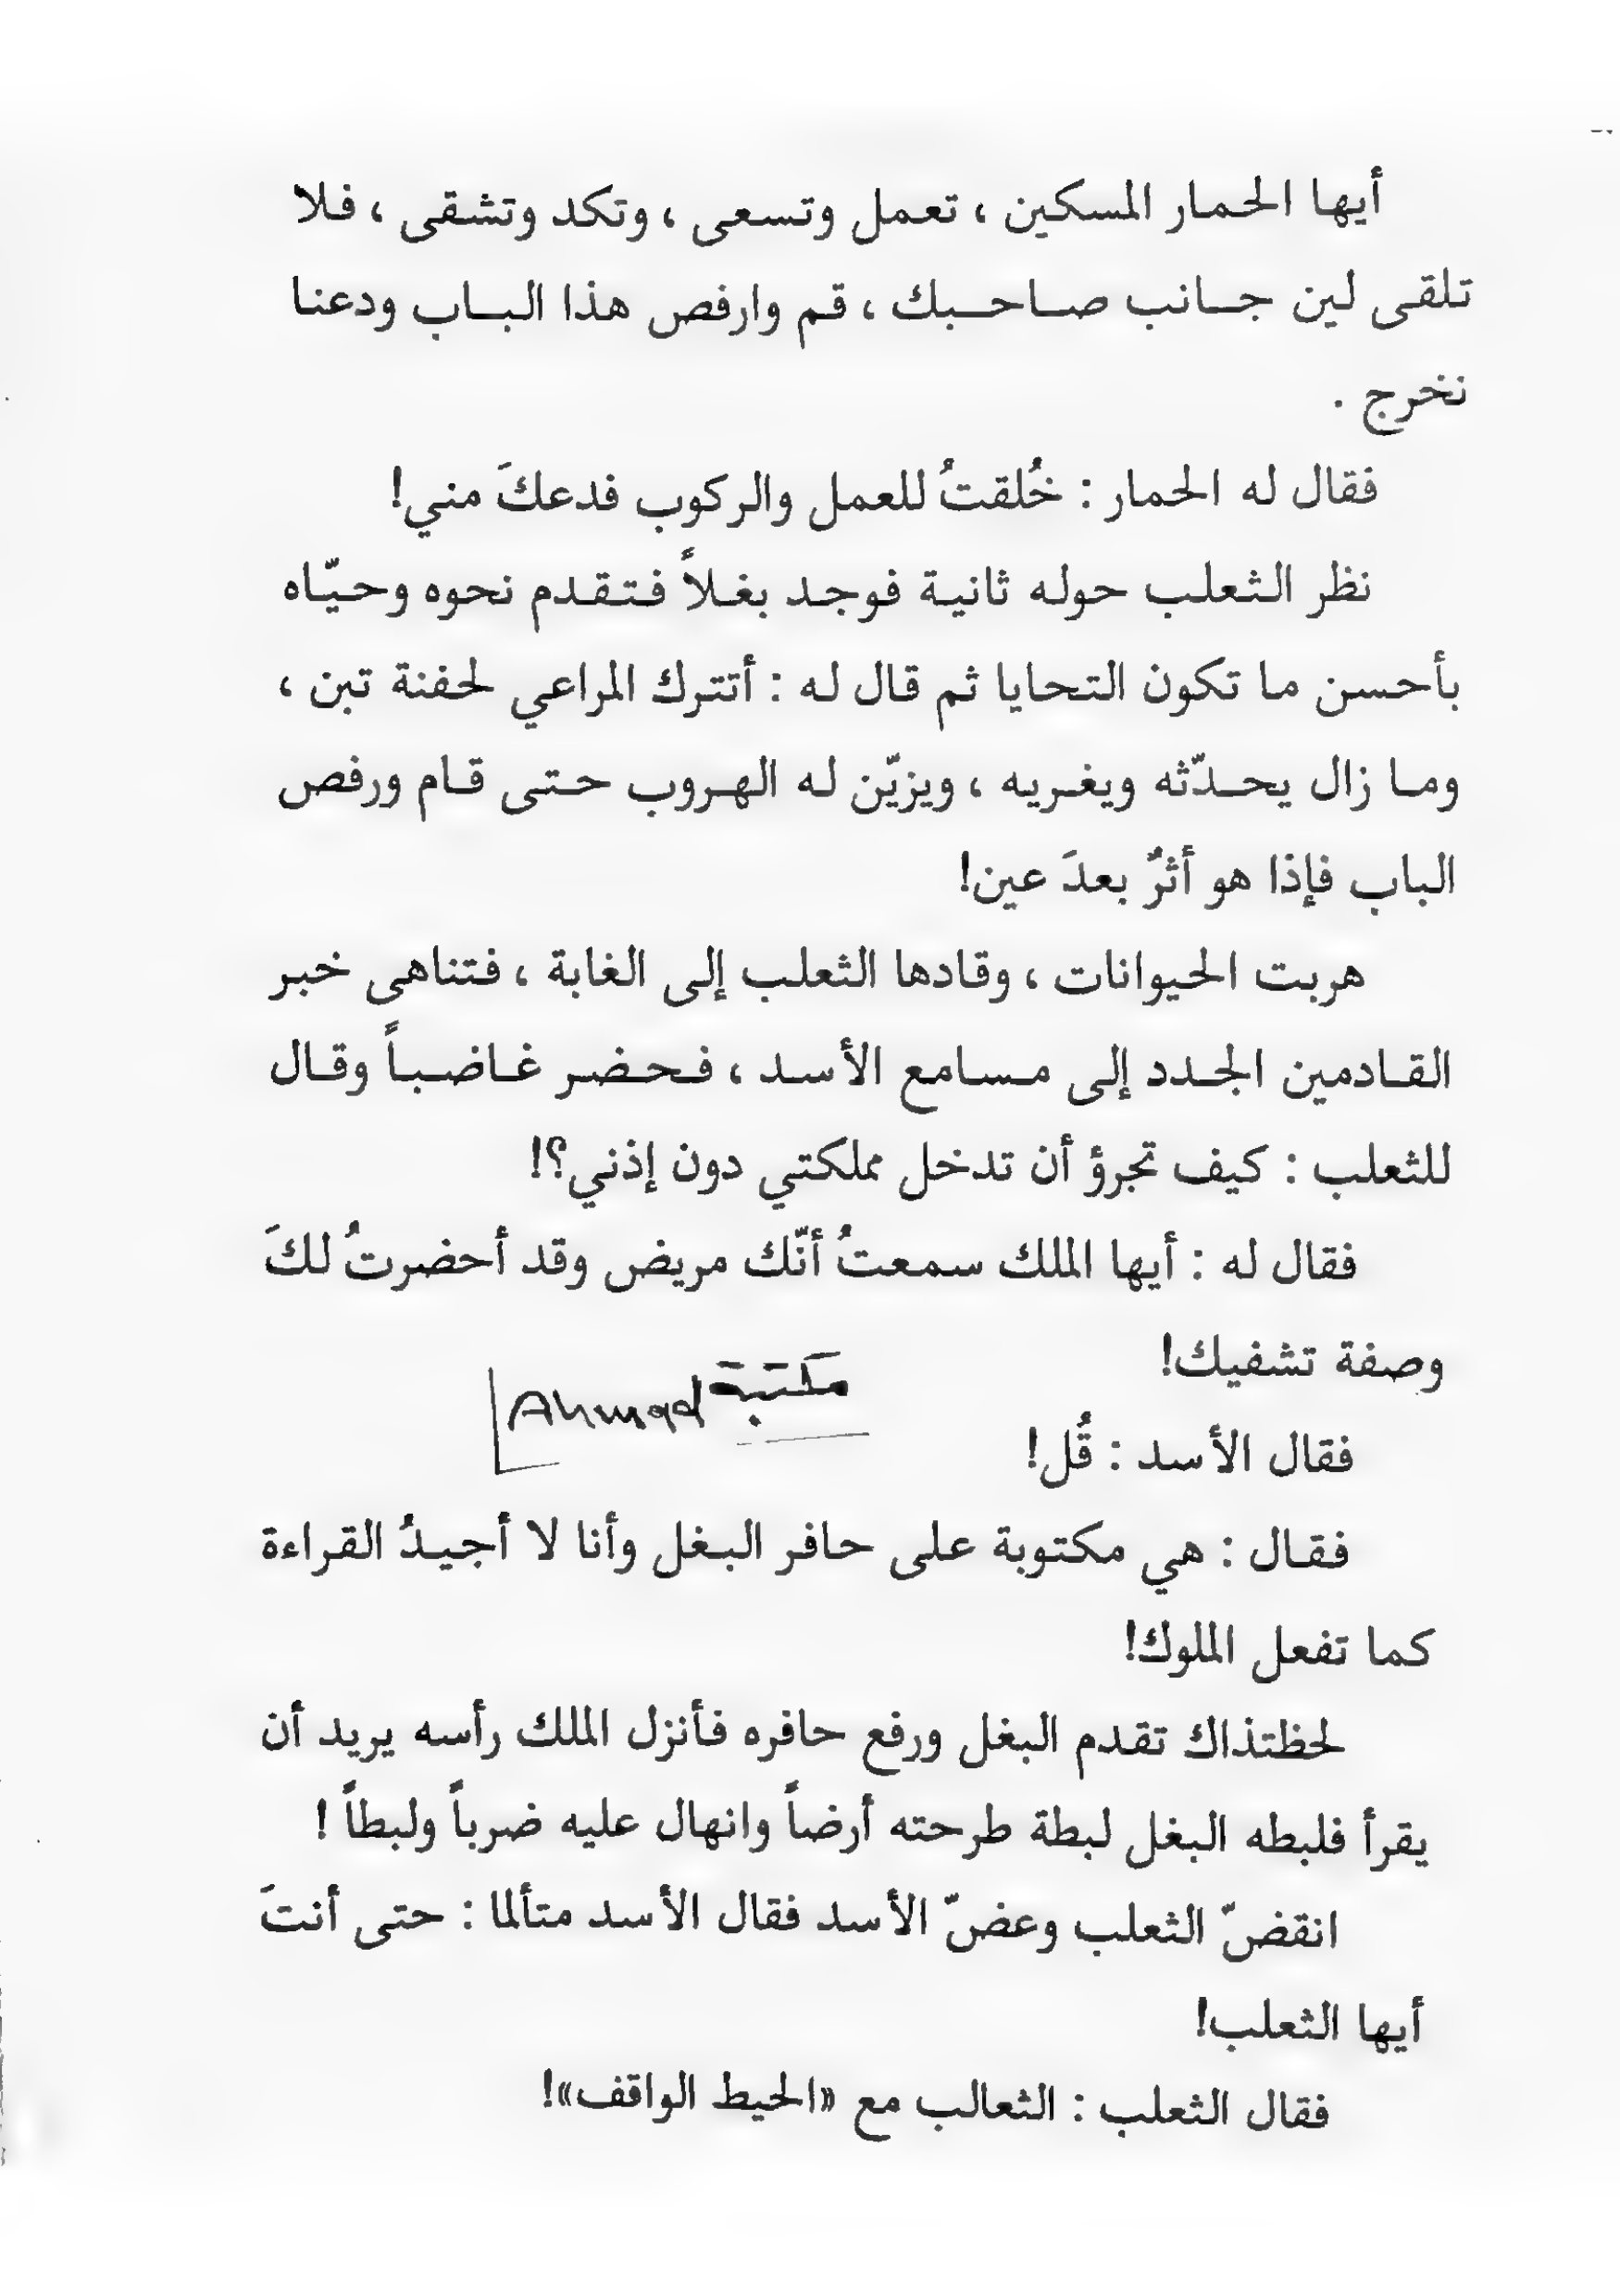 أيها الحمار المسكين ، تعمل وتسعى ، وتكد وتشقى ، فلا
تلقى لين جانب صاحبك ، قم وارفص هذا الباب ودعنا
نخرج .
فقال له الحمار : خُلقتُ للعمل والركوب فدعكَ مني!
نظر الثعلب حوله ثانية فوجد بغلاً فتقدم نحوه وحيّاه
بأحسن ما تكون التحايا ثم قال له : أتترك المراعي لحفنة تبن ،
وما زال يحدّثه ويغريه ، ويزيّن له الهروب حتى قام ورفص
الباب فإذا هو أثرٌ بعدَ عين!
هربت الحيوانات ، وقادها الثعلب إلى الغابة ، فتناهى خبر
القادمين الجدد إلى مسامع الأسد ، فحضر غاضباً وقال
للثعلب : كيف تجرؤ أن تدخل مملكتي دون إذني؟!
فقال له : أيها الملك سمعتُ أنّك مريض وقد أحضرتُ لكَ
وصفة تشفيك!
مكتبة Ahmad
فقال الأسد : قُل!
فقال : هي مكتوبة على حافر البغل وأنا لا أجيدُ القراءة
كما تفعل الملوك!
لحظتذاك تقدم البغل ورفع حافره فأنزل الملك رأسه يريد أن
يقرأ فلبطه البغل لبطة طرحته أرضاً وانهال عليه ضرباً ولبطاً !
انقضّ الثعلب وعضّ الأسد فقال الأسد متألما : حتى أنتَ
أيها الثعلب!
فقال الثعلب : الثعالب مع «الحيط الواقف»!